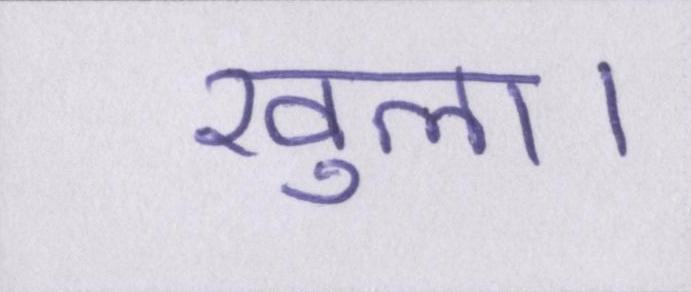 खुला।